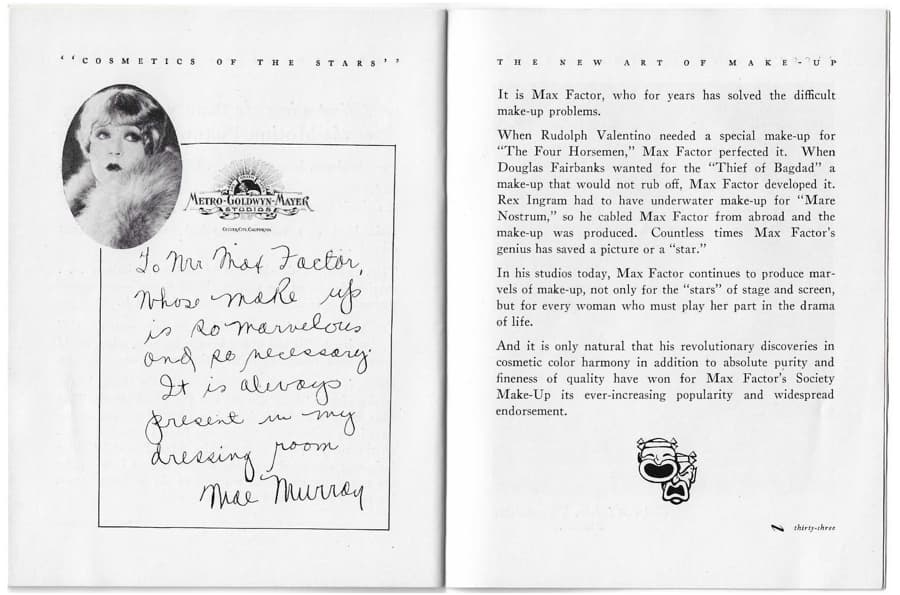 "COSMETICS OF THE STARS"
METRO-GOLDWYN-MAYER
STUDIOS
CULVER CITY, CALIFORNIA
To Mr Max Factor,
whose make up
is so marvelous
and so necessary.
It is always
present in my
dressing room
Mae Murray
THE NEW ART OF MAKE-UP
It is Max Factor, who for years has solved the difficult
make-up problems.
When Rudolph Valentino needed a special make-up for
"The Four Horsemen," Max Factor perfected it. When
Douglas Fairbanks wanted for the "Thief of Bagdad" a
make-up that would not rub off, Max Factor developed it.
Rex Ingram had to have underwater make-up for "Mare
Nostrum," so he cabled Max Factor from abroad and the
make-up was produced. Countless times Max Factor's
genius has saved a picture or a "star."
In his studios today, Max Factor continues to produce mar-
vels of make-up, not only for the "stars" of stage and screen,
but for every woman who must play her part in the drama
of life.
And it is only natural that his revolutionary discoveries in
cosmetic color harmony in addition to absolute purity and
fineness of quality have won for Max Factor's Society
Make-Up its ever-increasing popularity and widespread
endorsement.
thirty-three